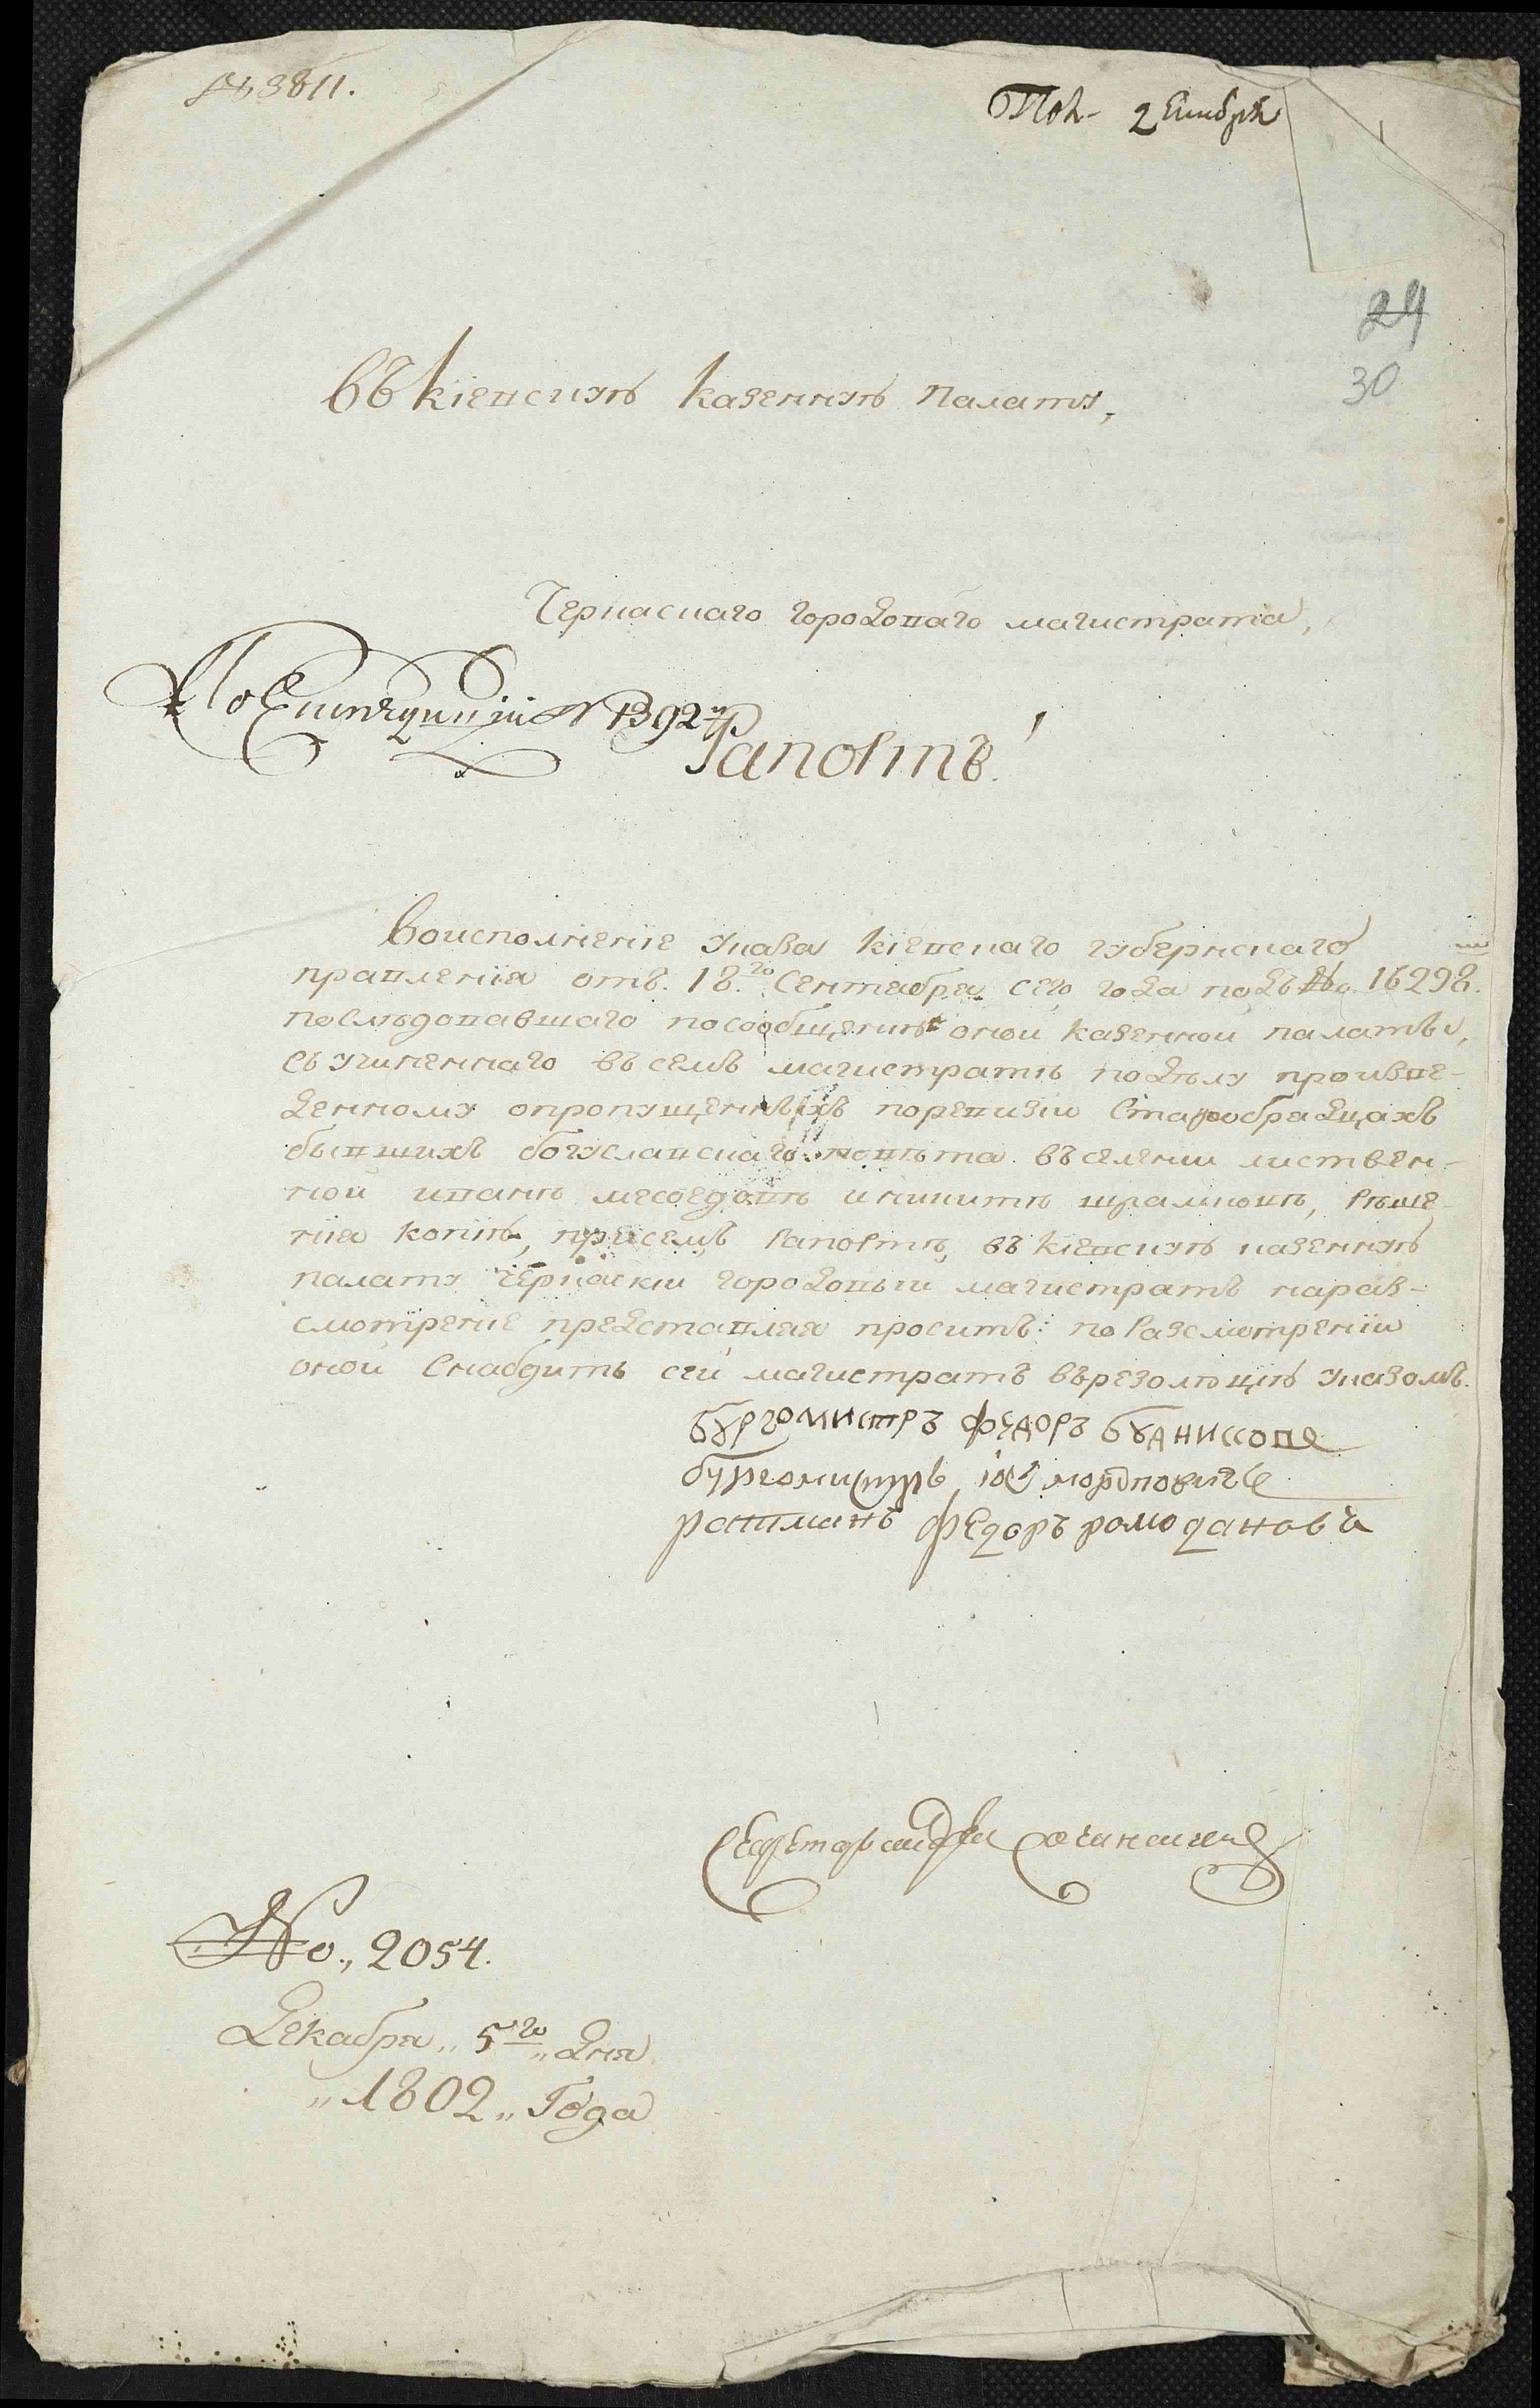 № 3811.
Пол. 2 Генваря
24
30
Въ кіевскую казенную палату,
Черкаскаго городоваго магистрата,
По Експедиціи № 1392й
Рапортъ!
Воисполненіе указа кіевскаго губернскаго
правленія отъ 18го Сентября сего года подъ № 16298.
последовавшаго посообщенію оной казенной палаты,
съ учиненнаго въ семъ магистрате поделу произве-
денному опропущенныхъ поревизіи Старообрядцахъ
бывшихъ богуславскаго повета въселении листвен-
ной иване месоедове иниките шрамкове, реше-
нія копію, присемъ рапорте, въ кіевскую казенную
палату черкаскій городовый магистратъ нараз-
смотреніе представляя проситъ: по разсмотреніи
оной Снабдить сей магистратъ върезолюцію указомъ.
бургомистръ федоръ
бургомистръ
ратманъ Федоръ ромодановъ
Секретарь
No„ 2054.
Декабря„ 5го„ Дня
„1802„ Года